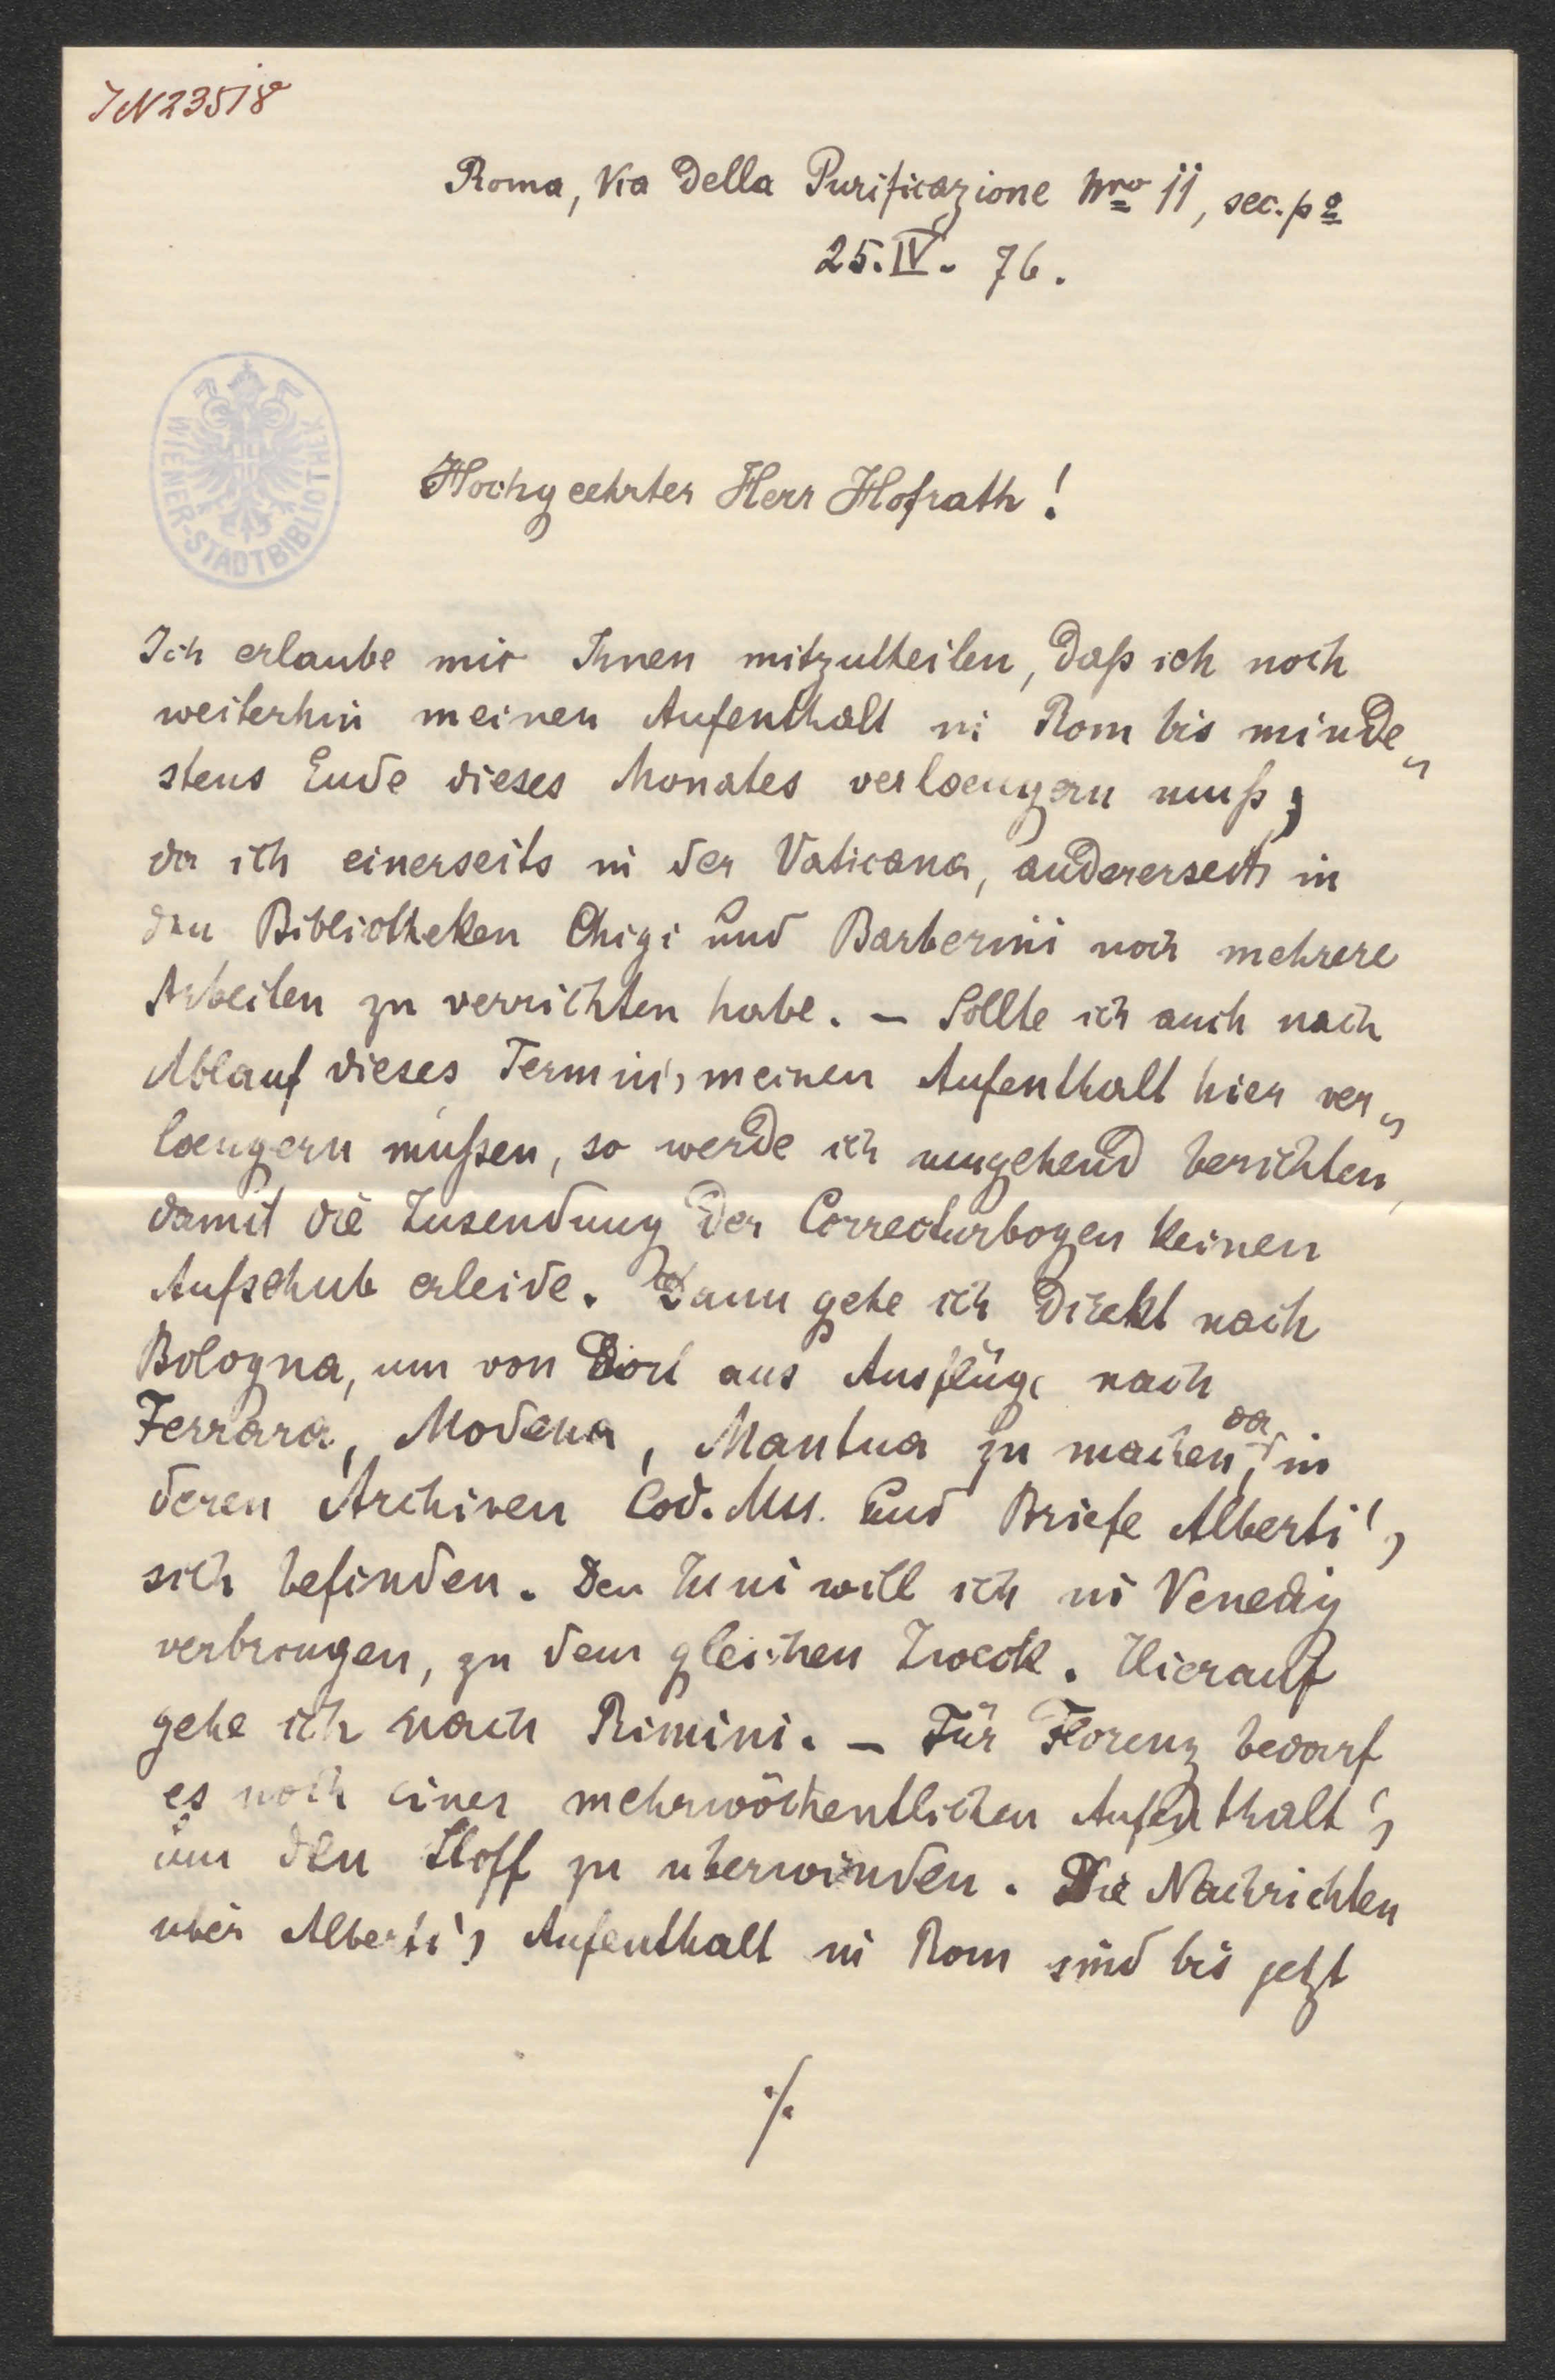 JN 23518
Roma, Via della Purificazione Nro 11, sec. po
25. IV. 76.
WIENER-STADTBIBLIOTHEK
Hochgeehrter Herr Hofrath!
Ich erlaube mir Ihnen mitzutheilen, daß ich noch
weiterhin meinen Aufenthalt in Rom bis minde„
stens Ende dieses Monates verlaengern muß;
da ich einerseits in der Vaticana, andererseits in
den Bibliotheken Chigi und Barberini noch mehrere
Arbeiten zu verrichten habe. – Sollte ich auch nach
Ablauf dieses Termin's meinen Aufenthalt hier ver„
laengern müßen, so werde ich umgehend berichten,
damit die Zusendung der Correcturbogen keinen
Aufschub erleide. Dann gehe ich direkt nach
Bologna, um von dort aus Ausflüge nach
Ferrara, Modena, Mantua zu machen, da in
deren Archiven Cod. Mss. und Briefe Alberti's
sich befinden. Den Juni will ich in Venedig
verbringen, zu dem gleichen Zweck. Hierauf
gehe ich nach Rimini. – Für Florenz bedarf
es noch eines mehrwöchentlichen Aufenthalt's
um den Stoff zu überwinden. Die Nachrichten
über Alberti's Aufenthalt in Rom sind bis jetzt
./.